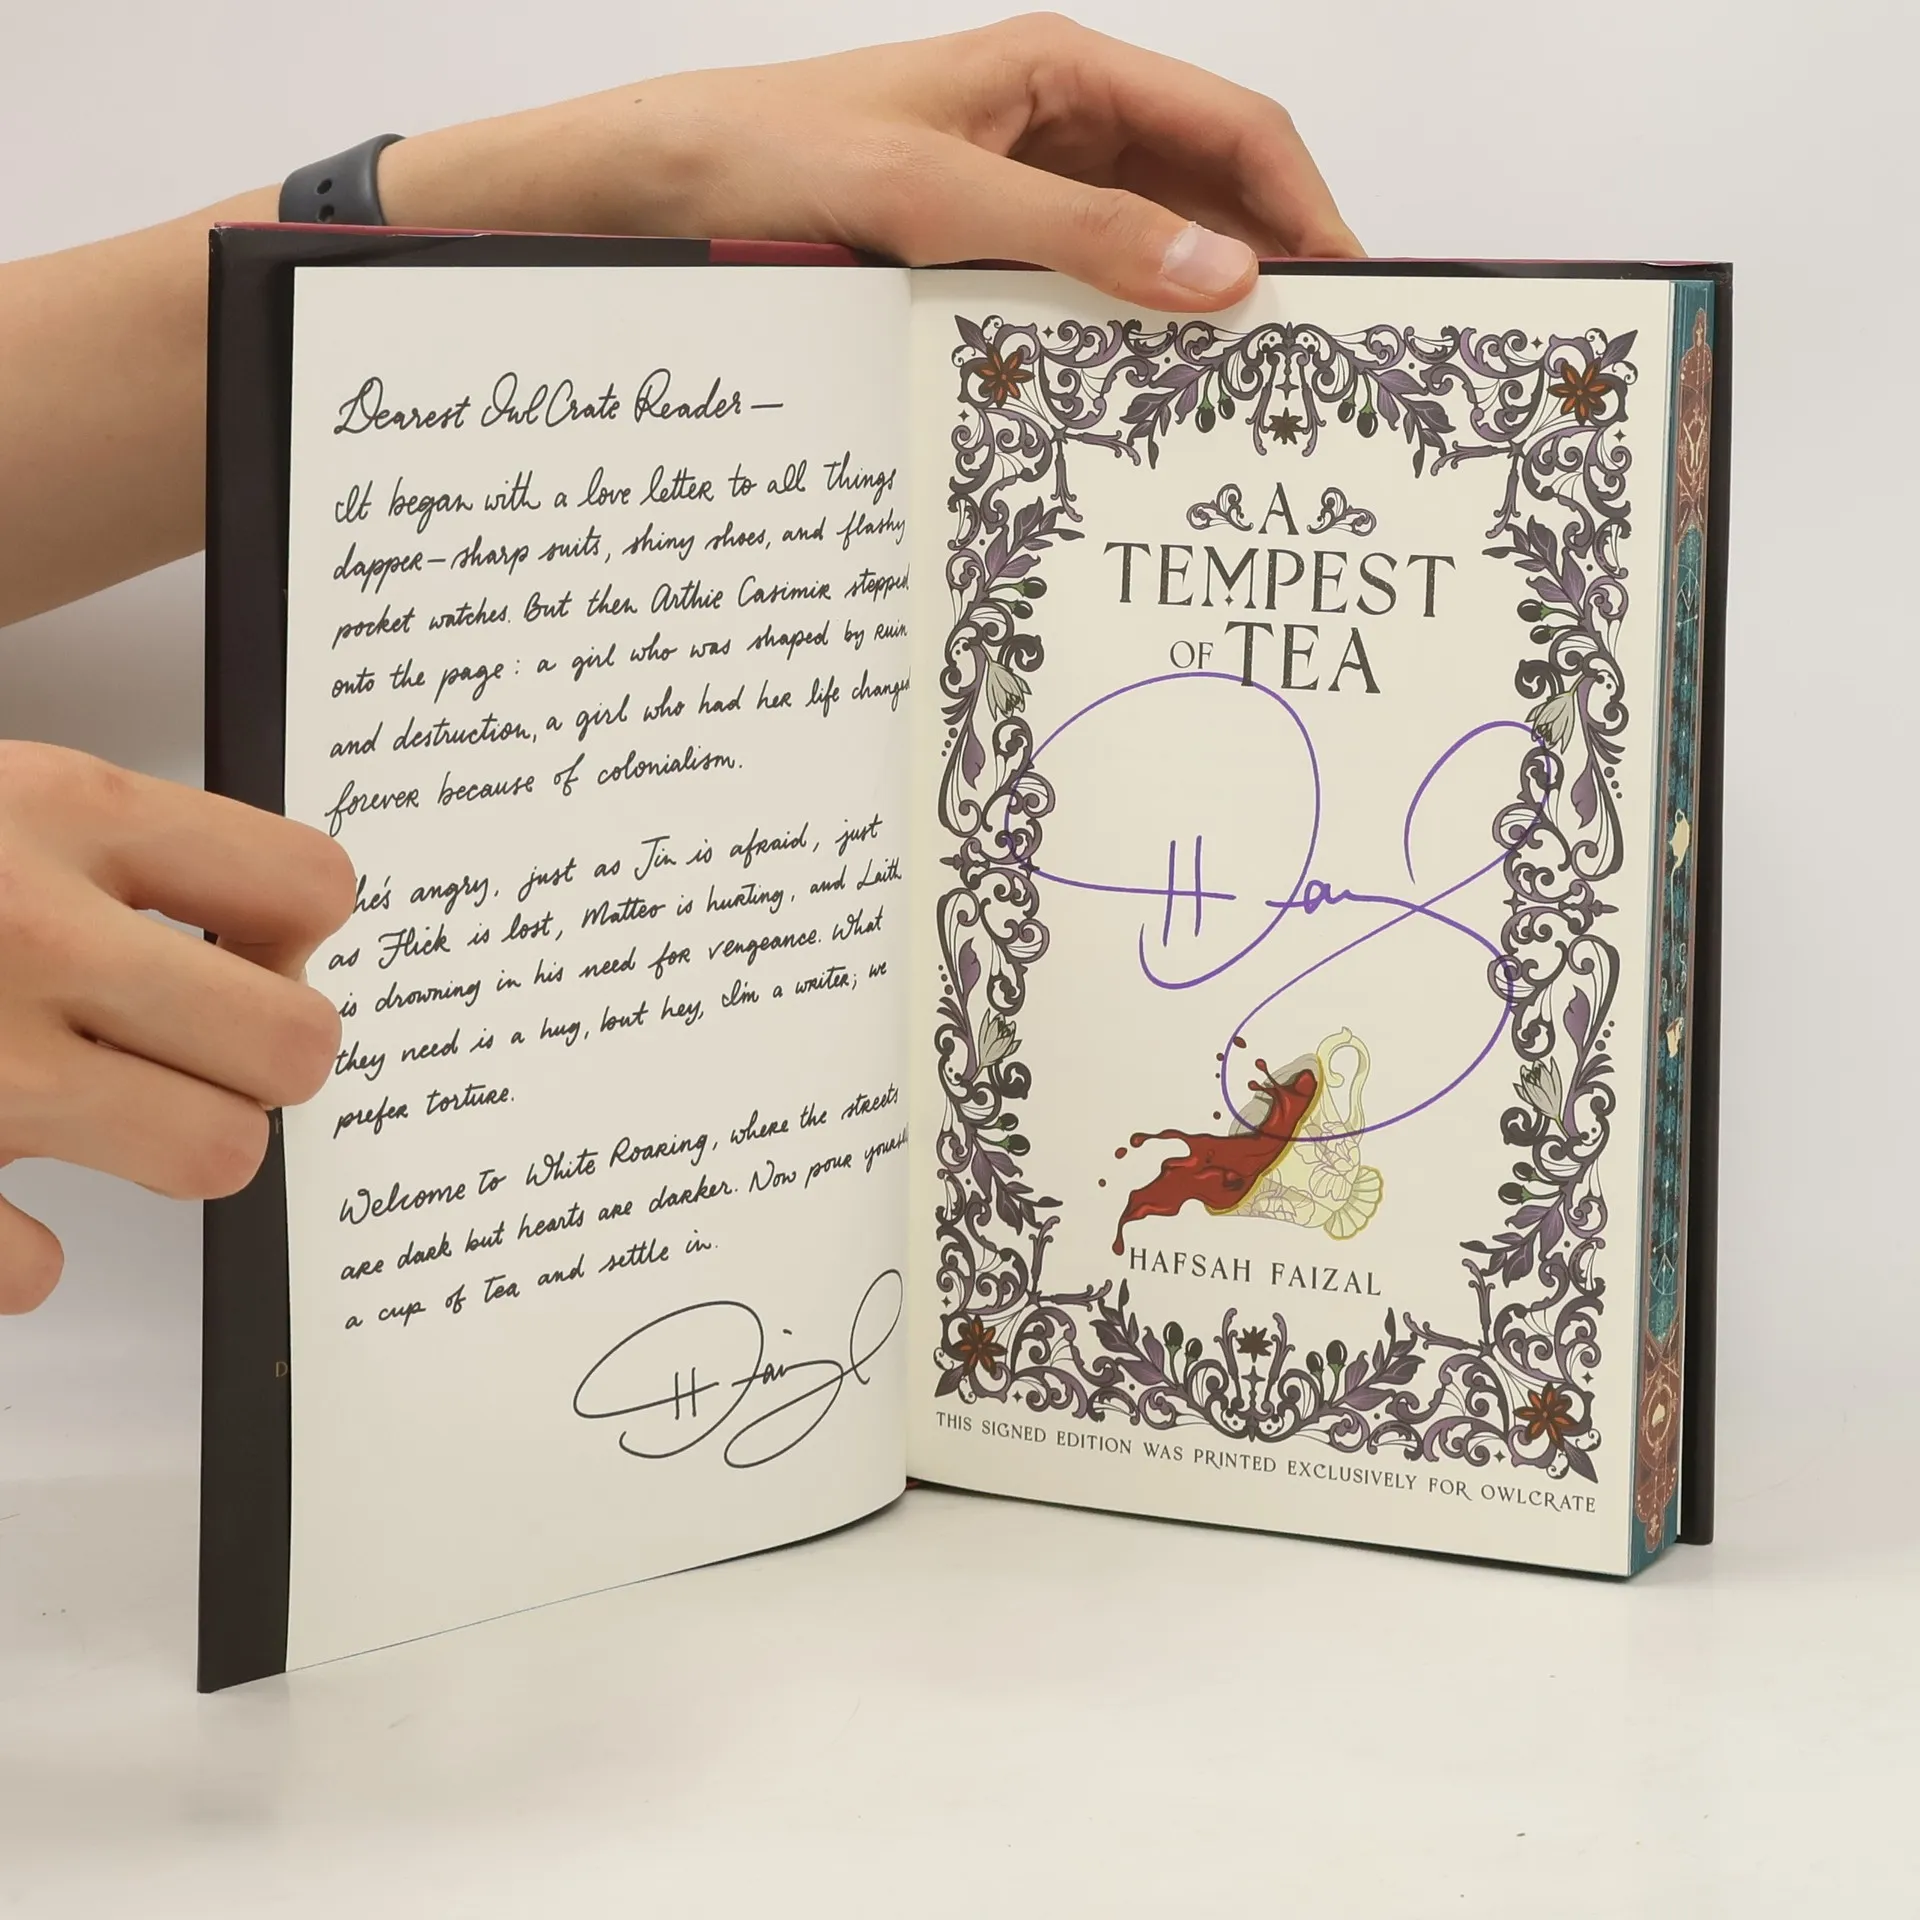 Dearest OwlCrate Reader—
It began with a love letter to all things
dapper—sharp suits, shiny shoes, and flashy
pocket watches. But then Arthie Casimir stepped
onto the page: a girl who was shaped by ruin
and destruction, a girl who had her life changed
forever because of colonialism.
he's angry, just as Jin is afraid, just
as Flick is lost, Matteo is hurting, and Laith
is drowning in his need for vengeance. What
they need is a hug, but hey, I'm a writer; we
prefer torture.
Welcome to White Roaring, where the streets
are dark but hearts are darker. Now pour yourself
a cup of tea and settle in.
H Faizal
A
TEMPEST
OF TEA
HAFSAH FAIZAL
THIS SIGNED EDITION WAS PRINTED EXCLUSIVELY FOR OWLCRATE